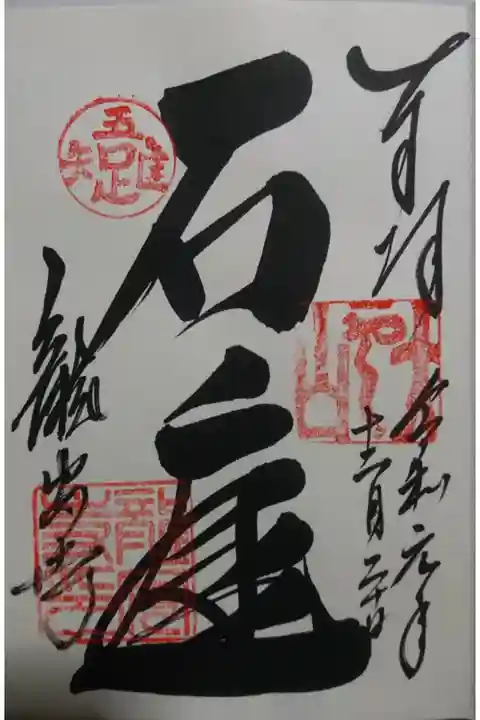 奉拝
令和元年
十二月二十日
石庭
吾唯足知
龍安寺